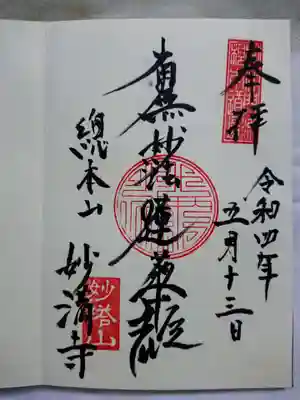 奉拝
令和四年
五月十三日
南無妙法蓮華経
總本山
妙満寺
妙塔山